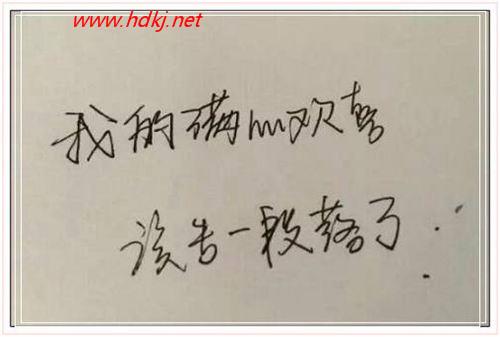 www.hdkj.net
我的满心欢喜
该告一段落了.